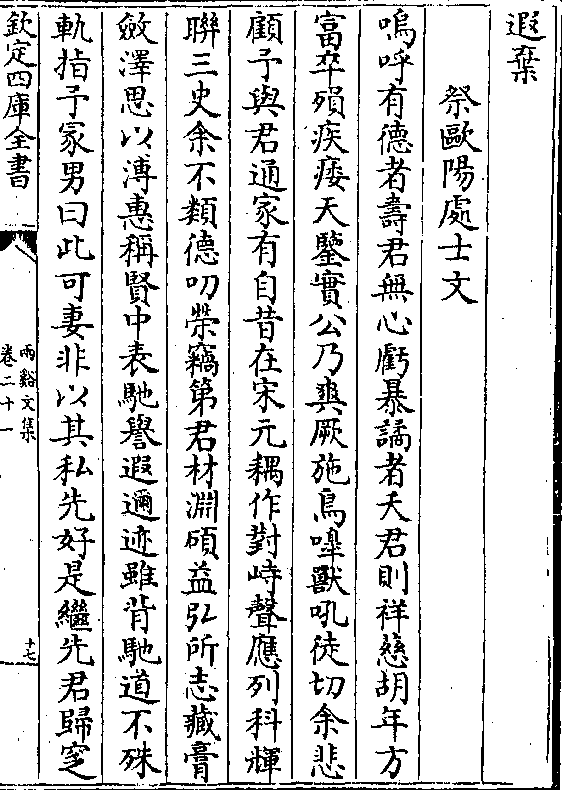 遐棄
祭歐陽處士文
嗚呼有德者壽君無心虧暴譎者夭君則祥慈胡年方
富卒殞疾痿天鑒實公乃爽厥施鳥嘷獸吼徒切余悲
顧予與君通家有自昔在宋元耦作對峙聲應列科輝
聯三史余不類德叨榮竊第君材淵碩益弘所志藏膏
斂澤思以溥惠稱賢中表馳譽遐邇迹雖背馳道不殊
軌指予家男曰此可妻非以其私先好是繼先君歸窆
欽定四庫全書
兩谿文集
卷二十一
十七